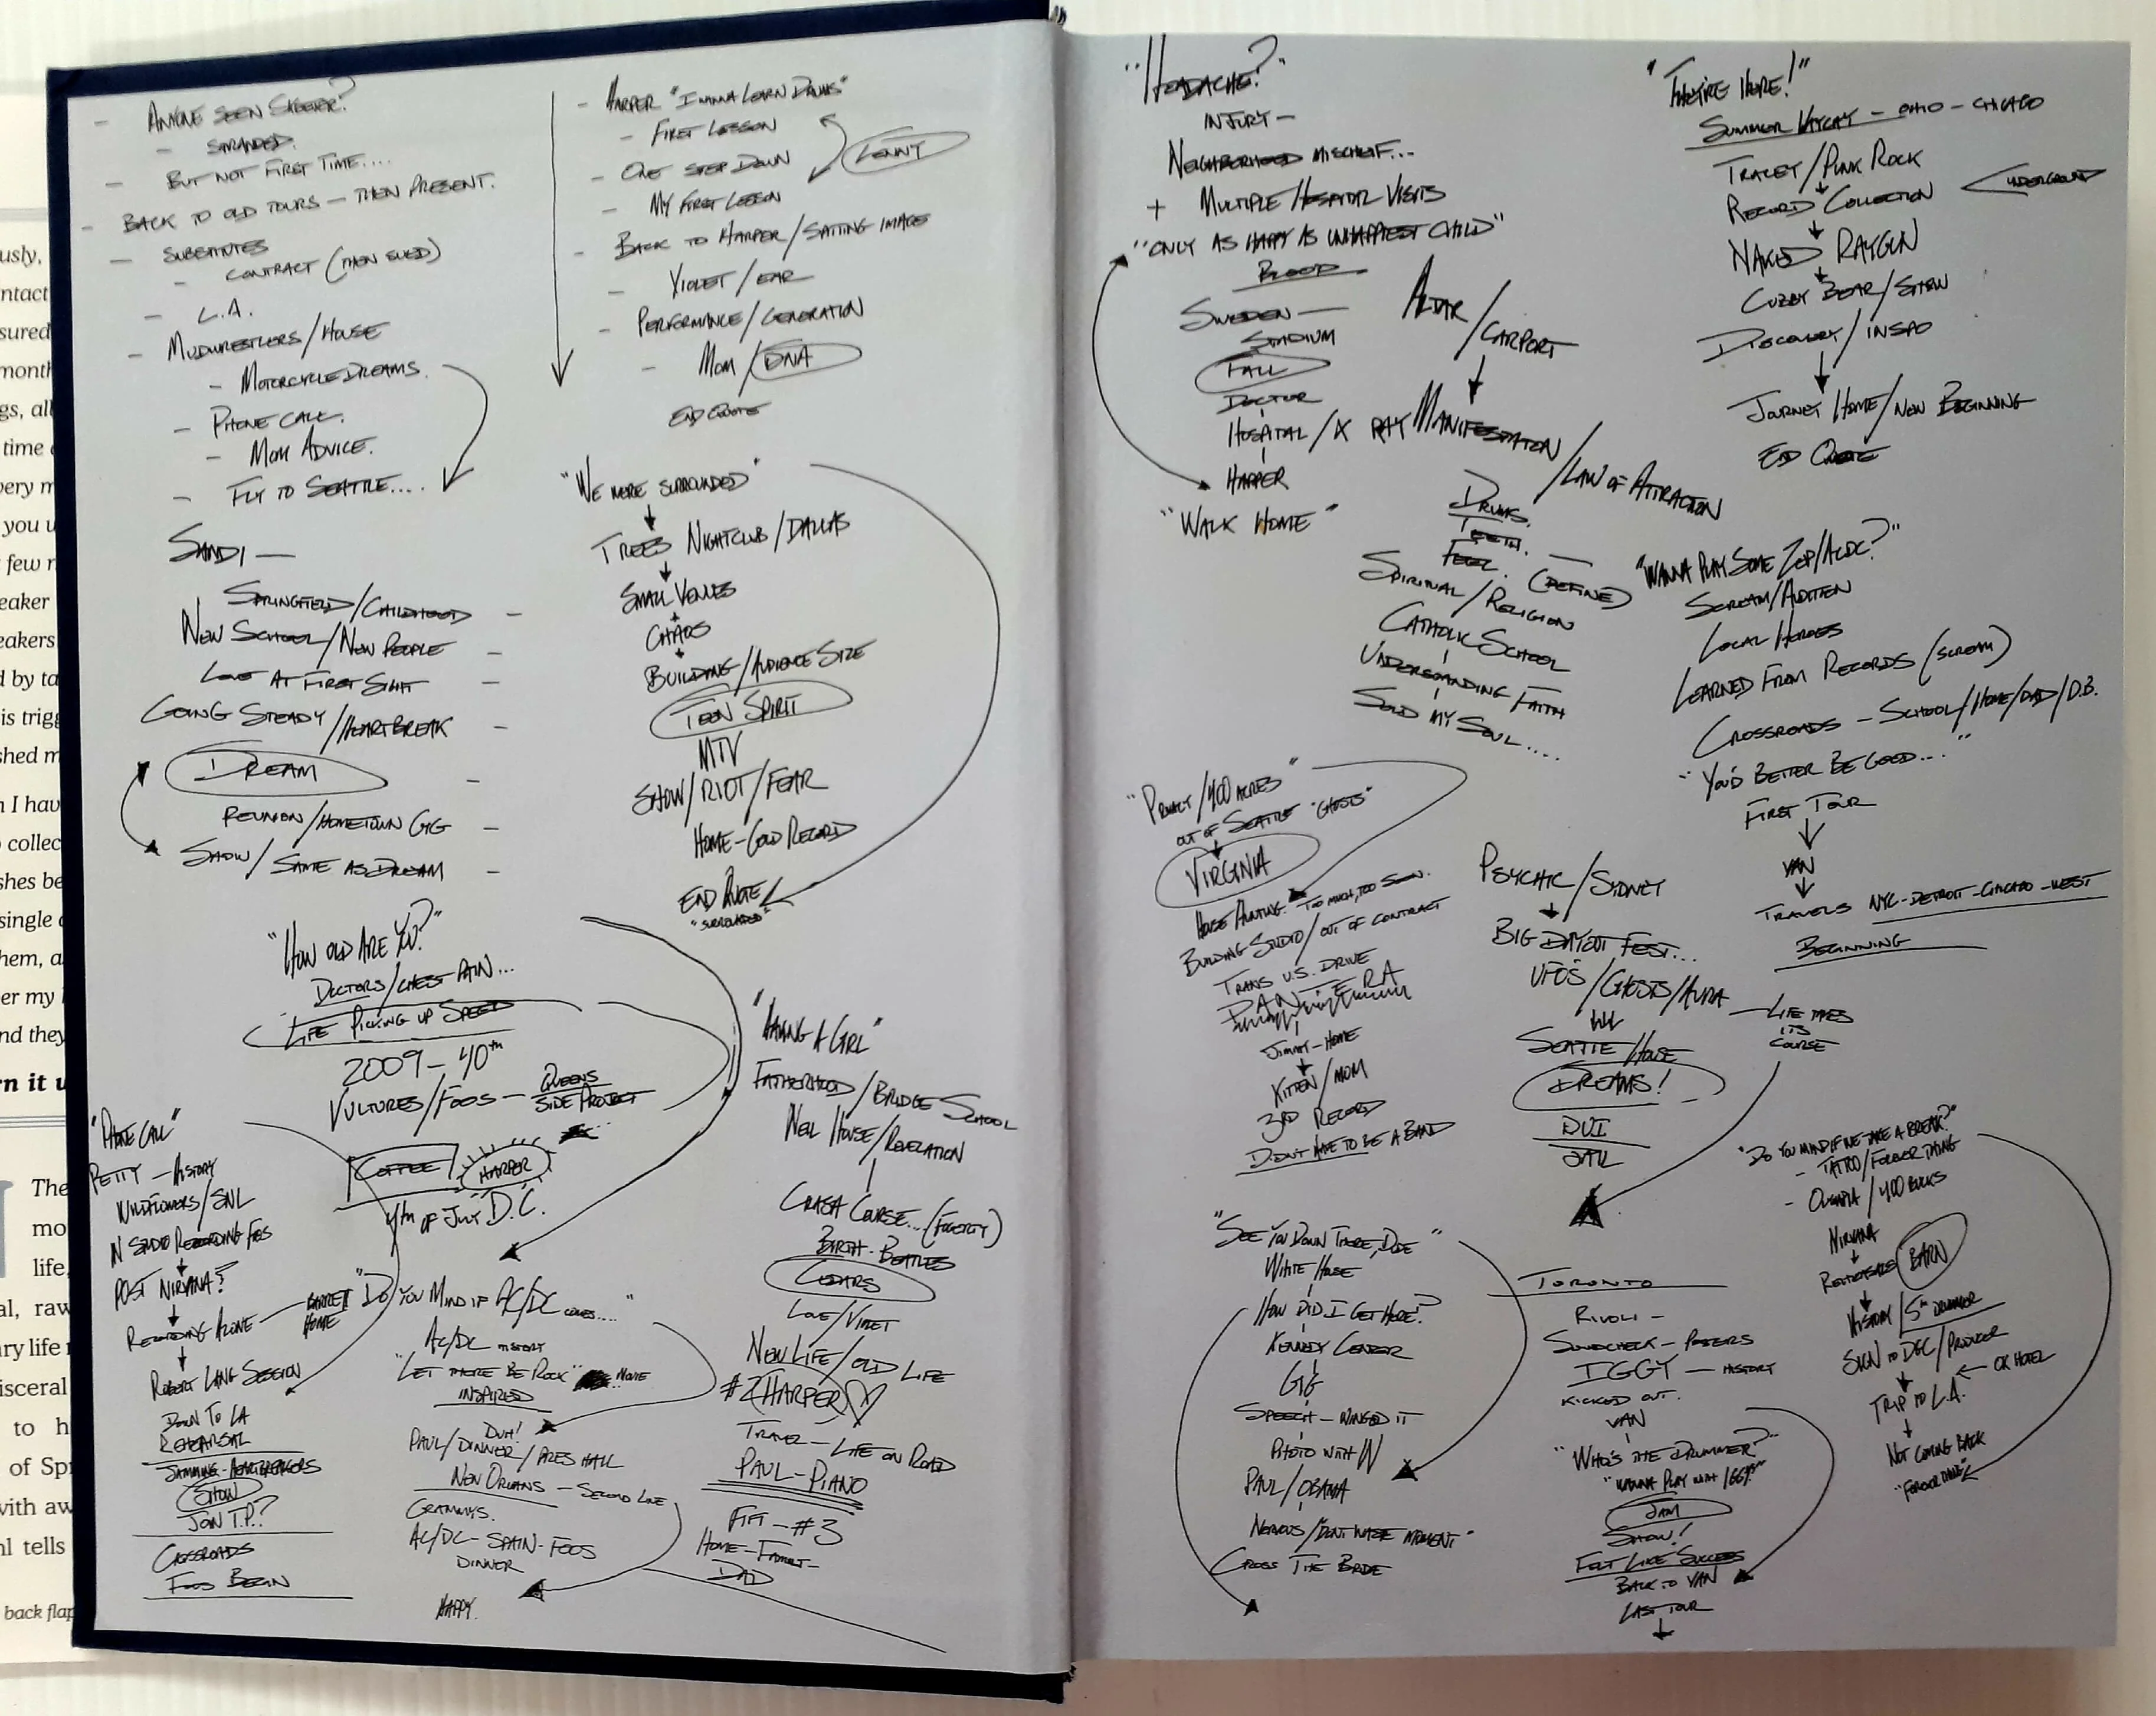 - ANYONE SEEN SKEETER?
- STRANDED.
- BUT NOT FIRST TIME....
- BACK TO OLD TOURS - THEN PRESENT.
- SUBSTITUTES
- CONTRACT (THEN SUED)
- L.A.
- MUDWRESTLERS/HOUSE
- MOTORCYCLE DREAMS.
- PHONE CALL.
- MOM ADVICE.
- FLY TO SEATTLE....
SANDI -
SPRINGFIELD/CHILDHOOD -
NEW SCHOOL/NEW PEOPLE -
LOVE AT FIRST SIGHT -
GOING STEADY/HEARTBREAK -
DREAM -
REUNION/HOMETOWN GIG -
SHOW/SAME AS DREAM -
- HARPER "I WANNA LEARN DRUMS"
- FIRST LESSON
- ONE STEP DOWN
LENNY
- MY FIRST LESSON
- BACK TO HARPER/SPITTING IMAGE
- VIOLET/EAR
- PERFORMANCE/GENERATION
- MOM/DNA
END QUOTE
"WE WERE SURROUNDED"
TREES NIGHTCLUB/DALLAS
SMALL VENUES
CHAOS
BUILDING/AUDIENCE SIZE
TEEN SPIRIT
MTV
SHOW/RIOT/FEAR
HOME-GOLD RECORD
END QUOTE
"SURROUNDED"
"HOW OLD ARE YOU?"
DOCTORS/CHEST PAIN...
LIFE PICKING UP SPEED
2009-40TH
VULTURES/FOOS - QUEENS
SIDE PROJECT
COFFEE
HARPER
4TH OF JULY D.C.
"PHONE CALL"
PETTY - HISTORY
WILDFLOWERS/SNL
IN STUDIO RECORDING FOOS
POST NIRVANA?
RECORDING ALONE - BARRETT
HOME
ROBERT LANG SESSION
DOWN TO LA
REHEARSAL
JAMMING-HEARTBREAKERS
SHOW
JOIN T.P.?
CROSSROADS
FOOS BEGIN
"DO YOU MIND IF AC/DC COMES...."
AC/DC HISTORY
"LET THERE BE ROCK" MOVIE
INSPIRED
DUH!
PAUL/DINNER/PRES HALL
NEW ORLEANS - SECOND LINE
GRAMMYS.
AC/DC-SPAIN-FOOS
DINNER
HAPPY.
"HAVING A GIRL"
FATHERHOOD/BRIDGE SCHOOL
NEIL HOUSE/REVELATION
CRASH COURSE...(FOGERTY)
BIRTH-BEATLES
CEDARS
LOVE/VIOLET
NEW LIFE/OLD LIFE
#2 HARPER
TRAVEL - LIFE ON ROAD
PAUL-PIANO
FIFI-#3
HOME-FAMILY-
DAD
"HEADACHE?"
INJURY -
NEIGHBORHOOD MISCHIEF...
+ MULTIPLE HOSPITAL VISITS
"ONLY AS HAPPY AS UNHAPPIEST CHILD"
BLOOD
SWEDEN -
STADIUM
FALL
DOCTOR
HOSPITAL/X RAY
HARPER
"WALK HOME"
ALTAR/CARPORT
MANIFESTATION/LAW OF ATTRACTION
DRUMS.
TEETH. -
FEEL. (DEFINED)
SPIRITUAL/RELIGION
CATHOLIC SCHOOL
UNDERSTANDING FAITH
SOLD MY SOUL....
"THEY'RE HERE!"
SUMMER VAYCAY - OHIO - CHICAGO
TRACEY/PUNK ROCK
RECORD COLLECTION
UNDERGROUND
NAKED RAYGUN
CUBBY BEAR/SHOW
DISCOVERY/INSPO
JOURNEY HOME/NEW BEGINNING
END QUOTE
"WANNA PLAY SOME ZEP/ACDC?"
SCREAM/AUDITION
LOCAL HEROES
LEARNED FROM RECORDS (SCREAM)
CROSSROADS - SCHOOL/HOME/DAD/D.B.
"YOU'D BETTER BE GOOD...."
FIRST TOUR
VAN
TRAVELS NYC-DETROIT-CHICAGO-WEST
BEGINNING
"PRIVACY/400 ACRES"
OUT OF SEATTLE "GHOSTS"
VIRGINIA
HOUSE HUNTING. TOO MUCH, TOO SOON.
BUILDING STUDIO/OUT OF CONTRACT
TRANS U.S. DRIVE
PANTERA
JIMMY-HOME
KITTEN/MOM
3RD RECORD
DIDN'T HAVE TO BE A BAND
PSYCHIC/SYDNEY
BIG DAY OUT FEST...
UFOS/GHOSTS/AURA
- LIFE TAKES
ITS
COURSE
SEATTLE/HOUSE
DREAMS!
DUI
JAIL
"SEE YOU DOWN THERE, DUDE"
WHITE HOUSE
HOW DID I GET HERE?
KENNEDY CENTER
GIG
SPEECH - WINGED IT
PHOTO WITH W
PAUL/OBAMA
NERVOUS/"DON'T WASTE MOMENT"
CROSS THE BRIDGE
TORONTO
RIVOLI -
SOUNDCHECK - POSTERS
IGGY - HISTORY
KICKED OUT.
VAN
"WHO'S THE DRUMMER?"
"WANNA PLAY WITH IGGY?"
JAM
SHOW!
FELT LIKE SUCCESS
BACK TO VAN
LAST TOUR
"DO YOU MIND IF WE TAKE A BREAK?"
- TATTOO/FOREVER THING
- OLYMPIA/400 BUCKS
NIRVANA
REHEARSALS BARN
HISTORY/5TH DRUMMER
SIGN TO DGC/PRODUCER
OK HOTEL
TRIP TO L.A.
NOT COMING BACK
"FOREVER THING"